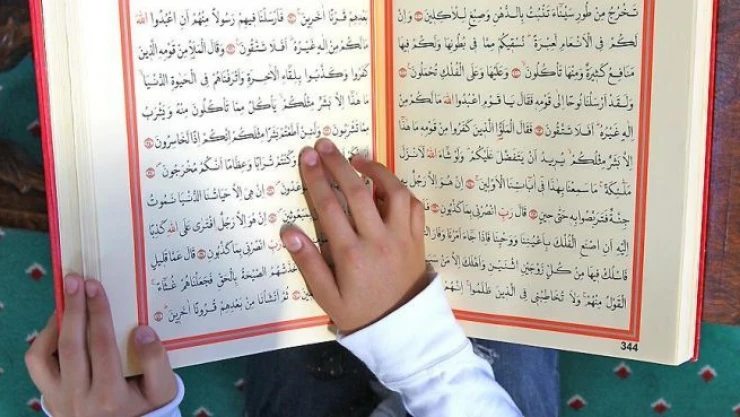 تَخْرُجُ مِنْ طُورِ سَيْنَٓاءَ تَنْبُتُ بِالدُّهْنِ وَصِبْغٍ لِلْاٰكِلٖينَ وَاِنَّ
لَكُمْ فِي الْاَنْعَامِ لَعِبْرَةً نُسْقٖيكُمْ مِمَّا فٖي بُطُونِهَا وَلَكُمْ فٖيهَا
مَنَافِعُ كَثٖيرَةٌ وَمِنْهَا تَأْكُلُونَ وَعَلَيْهَا وَعَلَى الْفُلْكِ تُحْمَلُونَ
وَلَقَدْ اَرْسَلْنَا نُوحًا اِلٰى قَوْمِهٖ فَقَالَ يَا قَوْمِ اعْبُدُوا اللّٰهَ مَا لَكُمْ مِنْ
اِلٰهٍ غَيْرُهُ اَفَلَا تَتَّقُونَ فَقَالَ الْمَلَؤُا الَّذٖينَ كَفَرُوا مِنْ قَوْمِهٖ مَا هٰذَا
اِلَّا بَشَرٌ مِثْلُكُمْ يُرٖيدُ اَنْ يَتَفَضَّلَ عَلَيْكُمْ وَلَوْ شَٓاءَ اللّٰهُ لَاَنْزَلَ
مَلٰٓئِكَةً مَا سَمِعْنَا بِهٰذَا فٖٓي اٰبَٓائِنَا الْاَوَّلٖينَ اِنْ هُوَ اِلَّا رَجُلٌ بِهٖ
جِنَّةٌ فَتَرَبَّصُوا بِهٖ حَتّٰى حٖينٍ قَالَ رَبِّ انْصُرْنٖي بِمَا كَذَّبُونِ
اِلَيْهِ اَنِ اصْنَعِ الْفُلْكَ بِاَعْيُنِنَا وَوَحْيِنَا فَاِذَا جَٓاءَ اَمْرُنَا وَفَارَ
فَاسْلُكْ فٖيهَا مِنْ كُلٍّ زَوْجَيْنِ اثْنَيْنِ وَاَهْلَكَ اِلَّا مَنْ
الْقَوْلُ مِنْهُمْ وَلَا تُخَاطِبْنٖي فِي الَّذٖينَ ظَلَمُوا اِنَّهُمْ
344
بَعْدِهِمْ قَرْنًا اٰخَرٖينَ فَاَرْسَلْنَا فٖيهِمْ رَسُولًا مِنْهُمْ اَنِ اعْبُدُوا اللّٰهَ
مَا لَكُمْ مِنْ اِلٰهٍ غَيْرُهُ اَفَلَا تَتَّقُونَ وَقَالَ الْمَلَاُ مِنْ قَوْمِهِ الَّذٖينَ
كَفَرُوا وَكَذَّبُوا بِلِقَٓاءِ الْاٰخِرَةِ وَاَتْرَفْنَاهُمْ فِي الْحَيٰوةِ الدُّنْيَا
مَا هٰذَٓا اِلَّا بَشَرٌ مِثْلُكُمْ يَأْكُلُ مِمَّا تَأْكُلُونَ مِنْهُ وَيَشْرَبُ
مِمَّا تَشْرَبُونَ وَلَئِنْ اَطَعْتُمْ بَشَرًا مِثْلَكُمْ اِنَّكُمْ اِذًا لَخَاسِرُونَ
وَكُنْتُمْ تُرَابًا وَعِظَامًا اَنَّكُمْ مُخْرَجُونَ
اِنْ هِيَ اِلَّا حَيَاتُنَا الدُّنْيَا نَمُوتُ
اِنْ هُوَ اِلَّا رَجُلٌ افْتَرٰى عَلَى اللّٰهِ كَذِبًا
رَبِّ انْصُرْنٖي بِمَا كَذَّبُونِ قَالَ عَمَّا قَلٖيلٍ
الصَّيْحَةُ بِالْحَقِّ فَجَعَلْنَاهُمْ غُثَٓاءً
ثُمَّ اَنْشَأْنَا مِنْ بَعْدِهِمْ قُرُونًا اٰخَرٖينَ